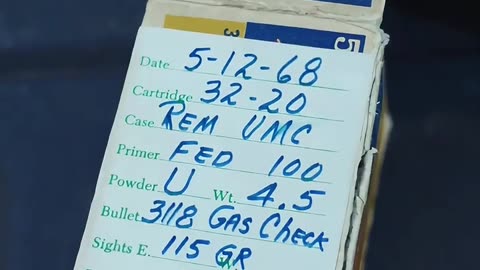 5
Date 5-12-68
Cartridge 32-20
Case REM UMC
Primer FED 100
Powder U Wt. 4.5
Bullet 3118 GAS CHECK
Sights E. 115 GR